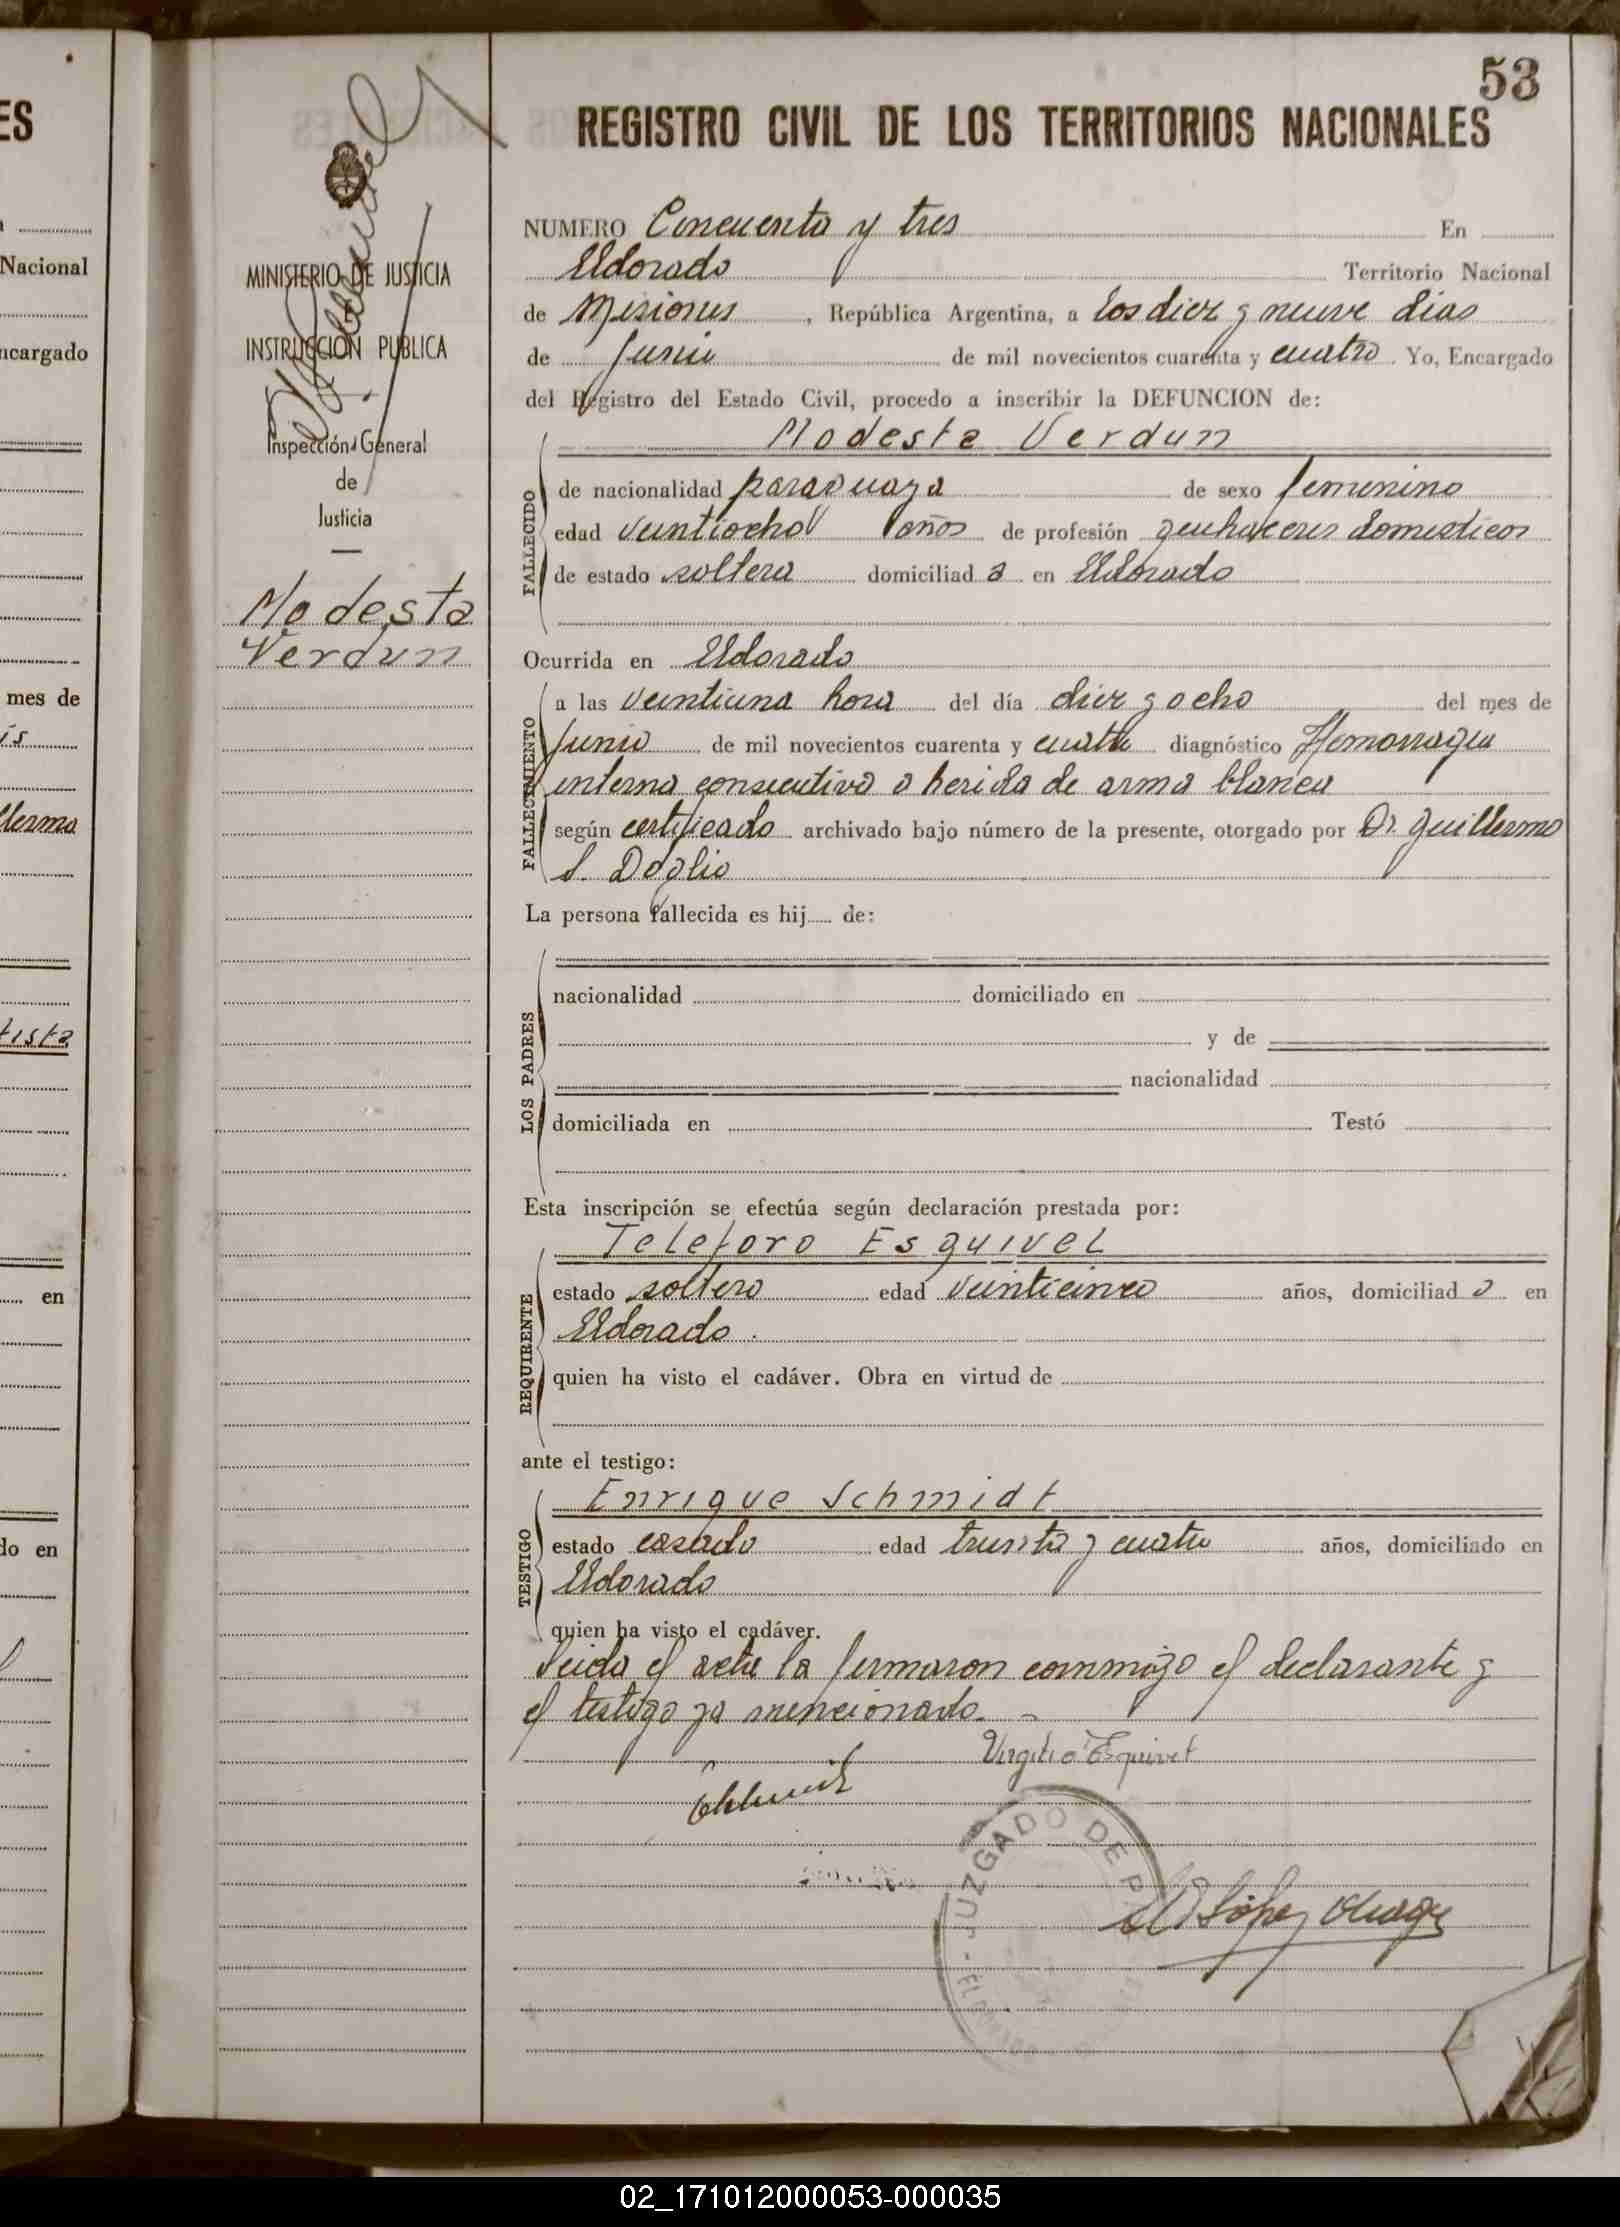 53
REGISTRO CIVIL DE LOS TERRITORIOS NACIONALES
NUMERO Cincuenta y tres En
Eldorado Territorio Nacional
de Misiones, República Argentina, a los diez y neuve dias
de Junio de mil novecientos cuarenta y cuatro. Yo, Encargado
del Registro del Estado Civil, procedo a inscribir la DEFUNCION de:
Modesta Verdun
FALLECIDO
de nacionalidad paraguaya de sexo femenino
edad veintiocho años de profesión quehaceres domesticos
de estado soltera domiciliad a en Eldorado
Ocurrida en Eldorado
FALLECIMIENTO
a las veintiuna hora del día diez y ocho del mes de
Junio de mil novecientos cuarenta y cuatro diagnóstico Hemorragia
interna consecutiva a herida de arma blanca
según certificado archivado bajo número de la presente, otorgado por Dr. Guillermo
S. Doglio
La persona fallecida es hij de:
LOS PADRES
nacionalidad domiciliado en
y de
nacionalidad
domiciliada en Testó
Esta inscripción se efectúa según declaración prestada por:
Teleforo Esquivel
REQUIRENTE
estado soltero edad veinticinco años, domiciliad o en
Eldorado.
quien ha visto el cadáver. Obra en virtud de
ante el testigo:
Enrique Schmidt
TESTIGO
estado casado edad treinta y cuatro años, domiciliado en
Eldorado
quien ha visto el cadáver.
Leida el acta la firmaron conmigo el declarante y
el testigo ya mencionado.
Virgilio Esquivel
JUZGADO DE P
ELDORADO
López
MINISTERIO DE JUSTICIA
INSTRUCCIÓN PUBLICA
Inspección General
de
Justicia
Modesta
Verdun
ES
Nacional
ncargado
mes de
is
llermo
tista
en
do en
02_171012000053-000035